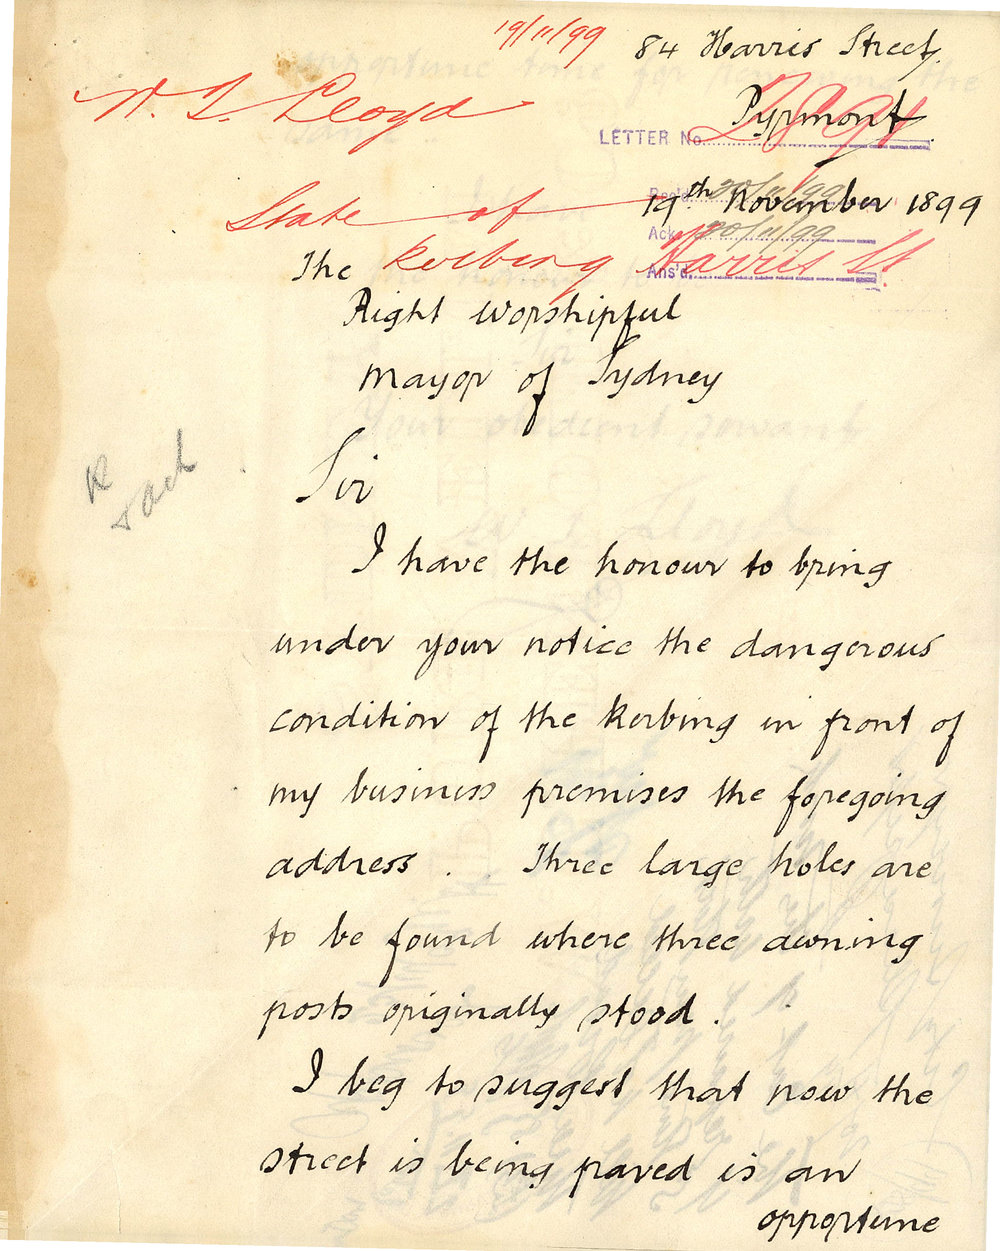 19/11/99
84 Harris Street
W. L. Lloyd
Pyrmont
LETTER No.
Rec'd. 20/11/99
19th November 1899
State of
Ack. 20/11/99
kerbing Harris St.
Ans'd.
The
Right Worshipful
Mayor of Sydney
Sir
I have the honour to bring
under your notice the dangerous
condition of the kerbing in front of
my business premises the foregoing
address. Three large holes are
to be found where three awning
posts originally stood.
I beg to suggest that now the
street is being paved is an
opportune